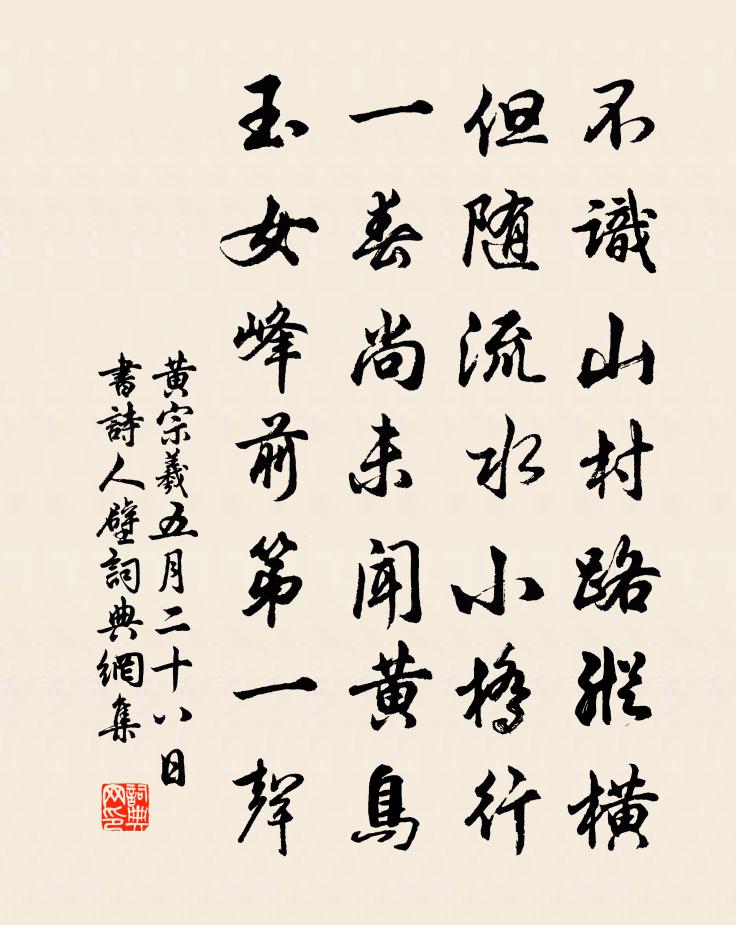 不識山村路縱橫
但随流水小橋行
一春尚未聞黄鳥
玉女峰前第一聲
黄宗羲五月二十八日
書詩人壁詞典網集
詞典网印